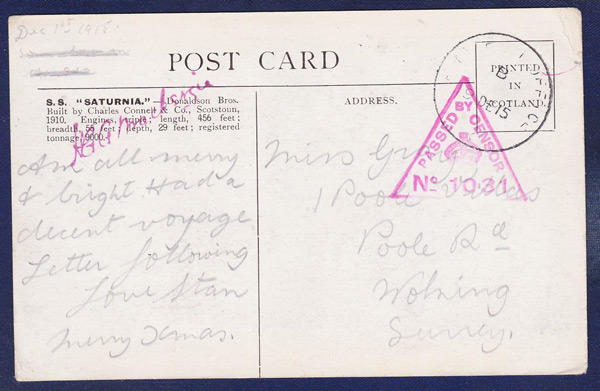 Dec 1st 1915
POST CARD
PRINTED
IN
SCOTLAND.
S.S. "SATURNIA."—Donaldson Bros.
Built by Charles Connell & Co., Scotstoun,
1910. Engines, triple; length, 456 feet;
breadth, 55 feet; depth, 29 feet; registered
tonnage, 9000.
ADDRESS.
9 DE 15
PASSED BY CENSOR
No 1031
Am all merry
& bright Had a
decent voyage
Letter following
Love Stan
Merry Xmas.
Miss
1 Poole Villas
Poole Rd
Woking
Surrey.